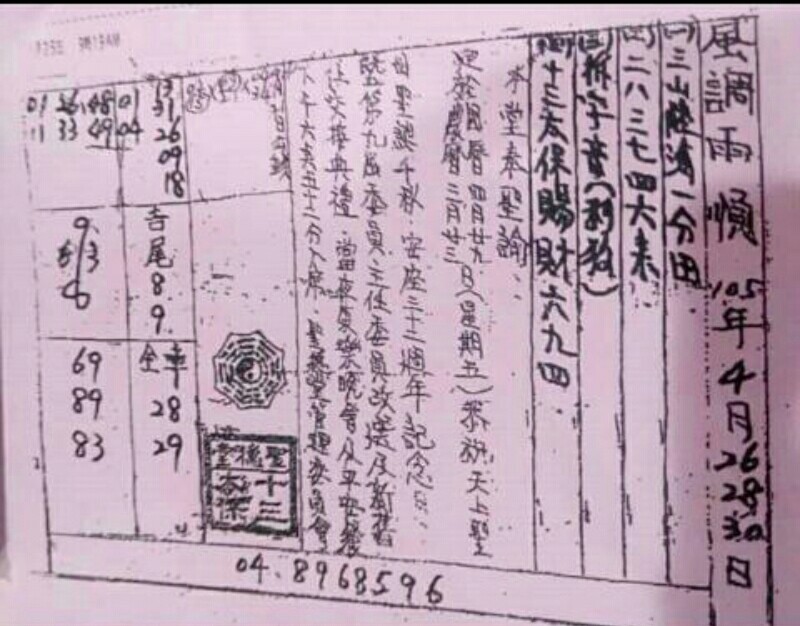 風調雨順 105年4月26 28 30日
(一)三山陸海一分田
(二)二八三七四六来
(三)拆字音(刈孩)
(四)十三太保賜財六九四
本堂奉聖諭:
定於國曆四月廿九日(星期五)恭祝天上聖
農曆三月廿三
母聖誕千秋.安座三十二週年記念日.
暨第九屆委員主任委員改選及新舊
任交接典禮.當夜康樂晚會及平安餐
下午六奌五十二分入席.聖機堂管理委員會
13
31
26
09
18
01 26 48 01
11 33 49 04
吉尾
8
9
全車
28
29
69
89
83
聖機堂
十三太保
04.8968596